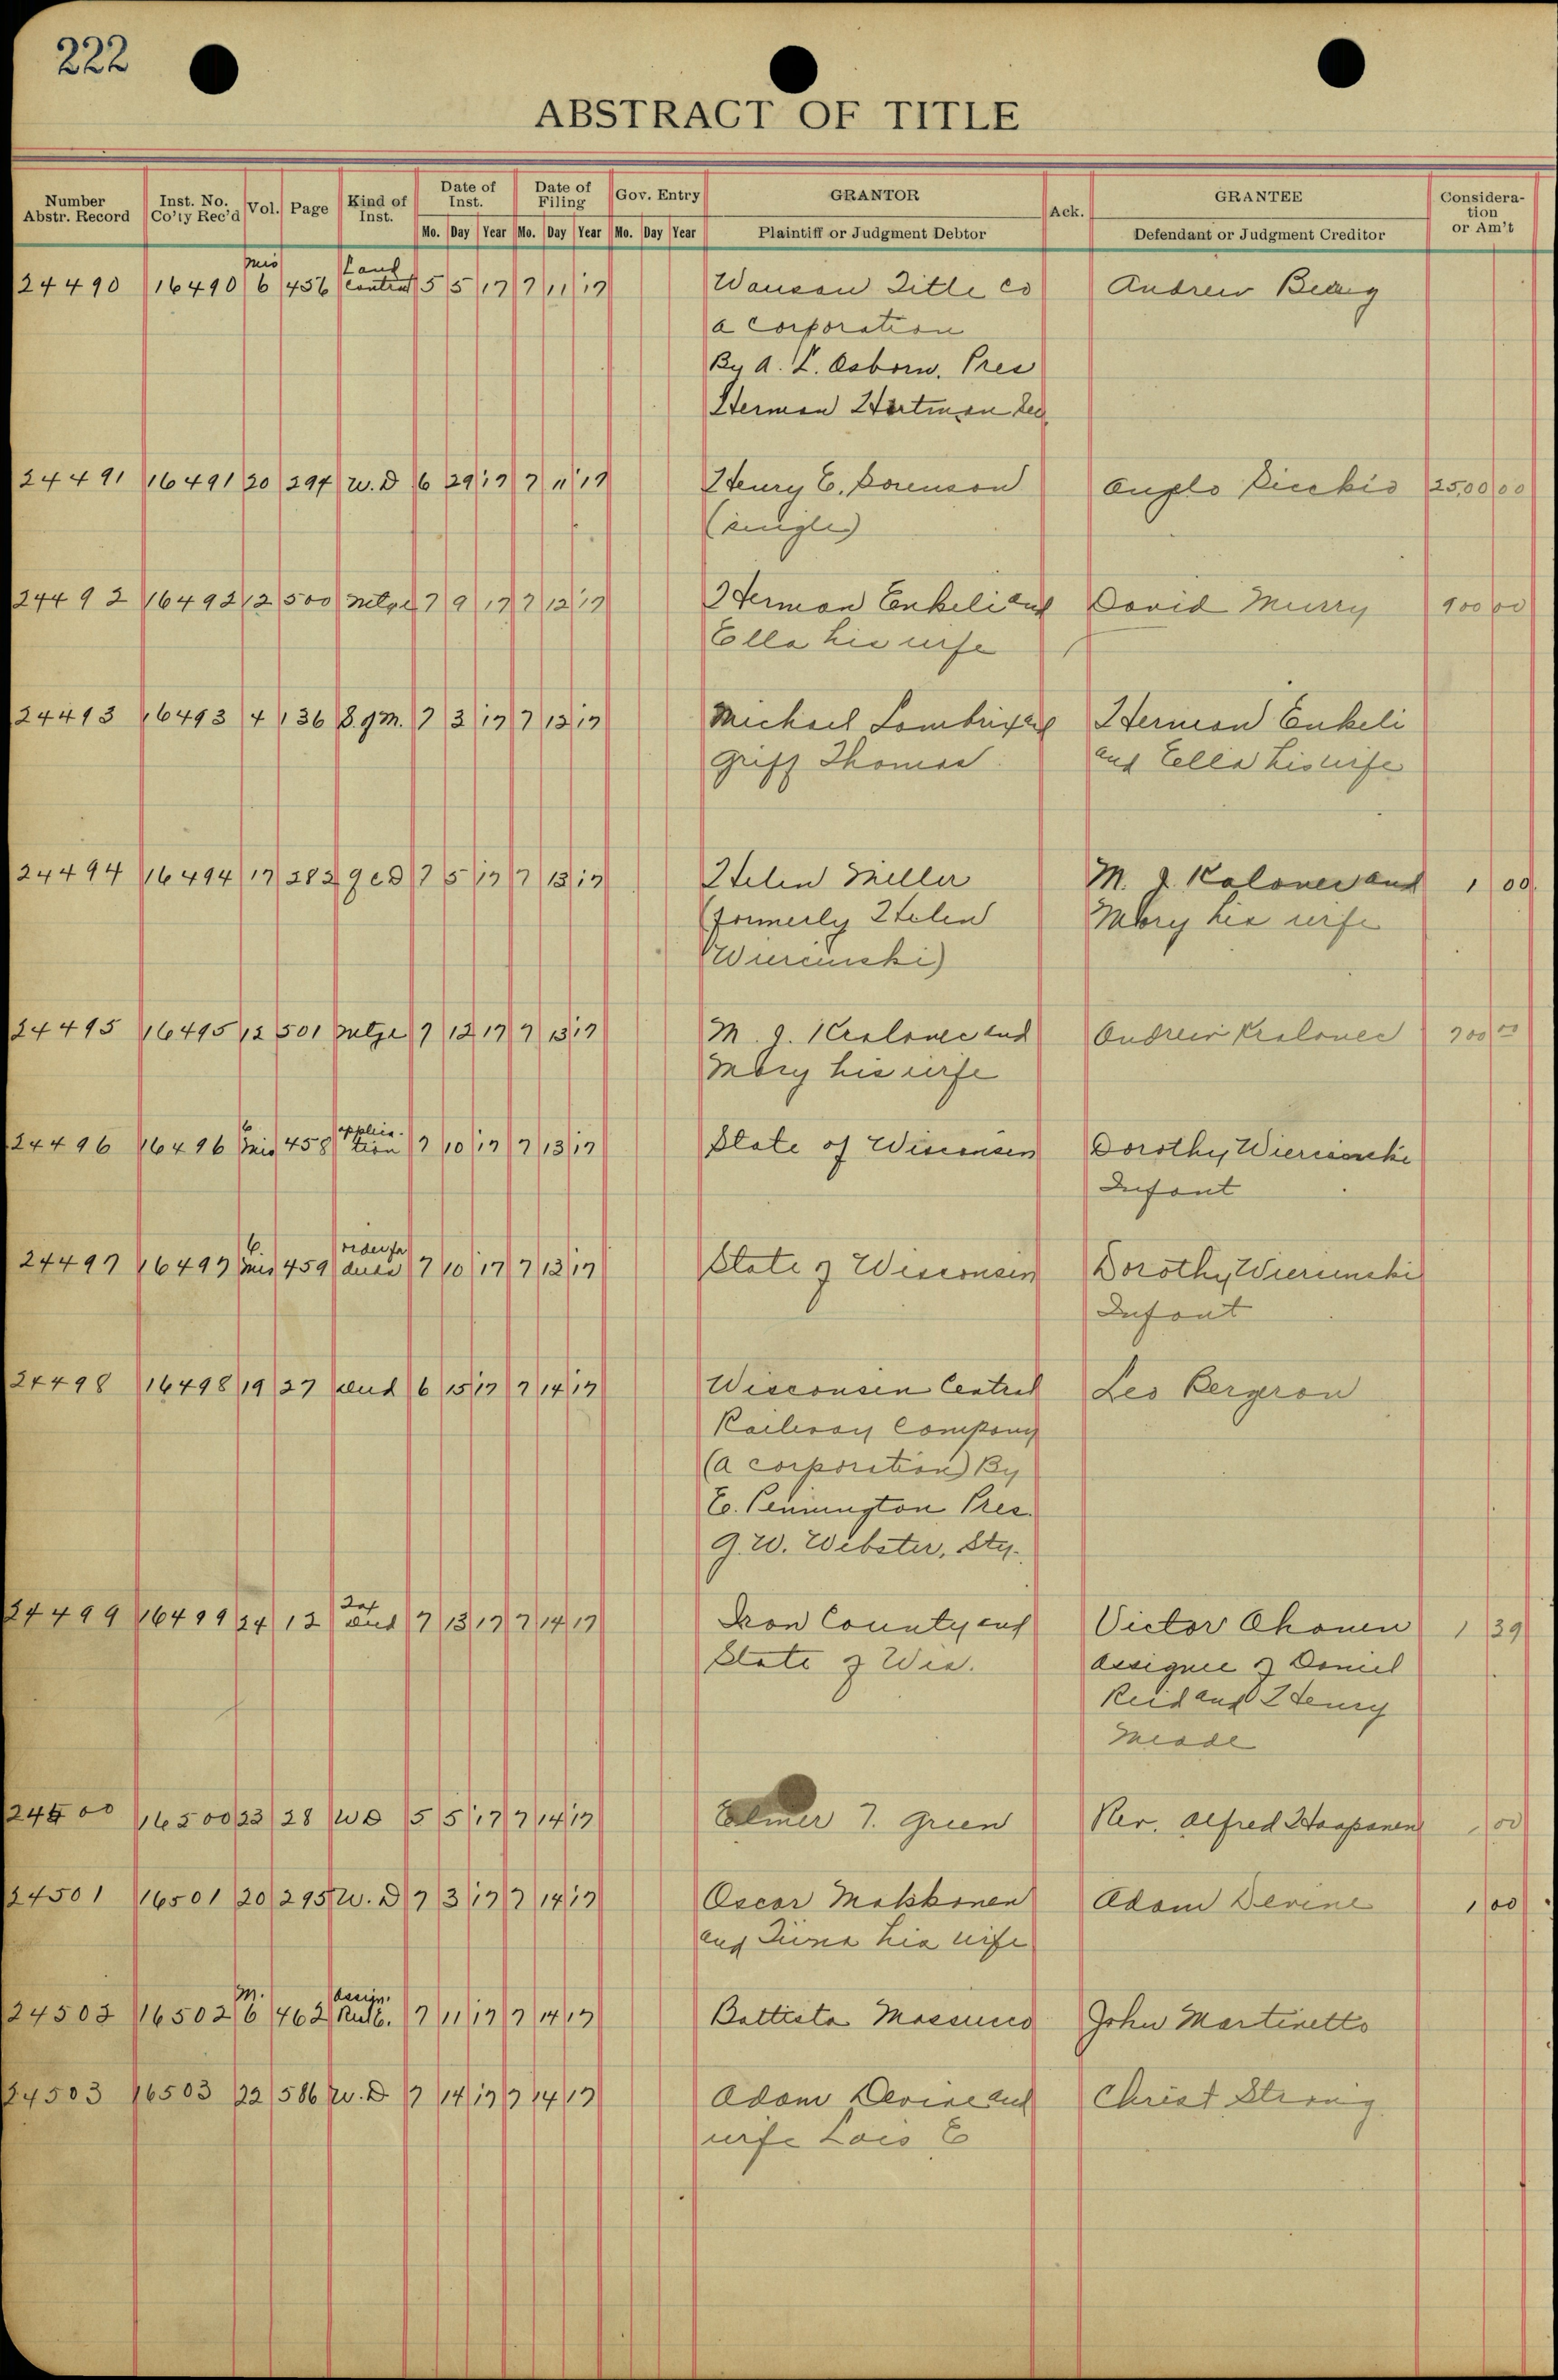 222
ABSTRACT OF TITLE
Number Abstr. Record Inst. No. Co'ty Rec'd Vol. Page Kind of Inst. Date of Inst. Date of Filing Gov. Entry GRANTOR Ack. GRANTEE Considera-tion or Am't
Mo. Day Year Mo. Day Year Mo. Day Year Plaintiff or Judgment Debtor Defendant or Judgment Creditor
Mis Land
24490 16490 6 456 Contract 5 5 17 7 11 17 Wausau Title Co Andrew
a corporation
By A. L. Osborn, Pres
Herman Hartman Sec
24491 16491 20 294 W.D 6 29 17 7 11 17 Henry E. Sorenson Anglo 2500 00
(single)
24492 16492 12 500 Mtge 7 9 17 7 12 17 Herman Enkeli and David Murry 900 00
Ella his wife
24493 16493 4 136 S.gm. 7 3 17 7 12 17 Michael Griff Thomas Herman Enkeli
and Ella his wife
24494 16494 17 282 QCD 7 5 17 7 13 17 Helen Miller M. J. Kalonec and 1 00
(formerly Helen Mary his wife
Wiercinski)
24495 16495 12 501 Mtge 7 12 17 7 13 17 M. J. Kralovec and Andrew Kralovec 700 00
Mary his wife
6 applica-
24496 16496 Mis 458 tion 7 10 17 7 13 17 State of Wisconsin Dorothy Wiercinski
Infant
6 order for
24497 16497 Mis 459 7 10 17 7 13 17 State of Wisconsin Dorothy Wiercinski
Infant
24498 16498 19 27 Deed 6 15 17 7 14 17 Wisconsin Central Leo Bergeron
Railway Company
(a corporation) By
E. Pennington Pres.
G. W. Webster, Sty.
Tax
24499 16499 24 12 Deed 7 13 17 7 14 17 Iron County and Victor Ahonen 1 39
State of Wis. assignee of Daniel
Reid and Henry
Meade
24500 16500 23 28 WD 5 5 17 7 14 17 Elmer T. Green Rev. Alfred Haapanen 1 00
24501 16501 20 295 W.D 7 3 17 7 14 17 Oscar Makkonen Adam Devine 1 00
and his wife
M. Assign.
24502 16502 6 462 7 11 17 7 14 17 Battista John Martinetto
24503 16503 22 586 W.D 7 14 17 7 14 17 Adam Devine and Christ Strong
wife Lois E